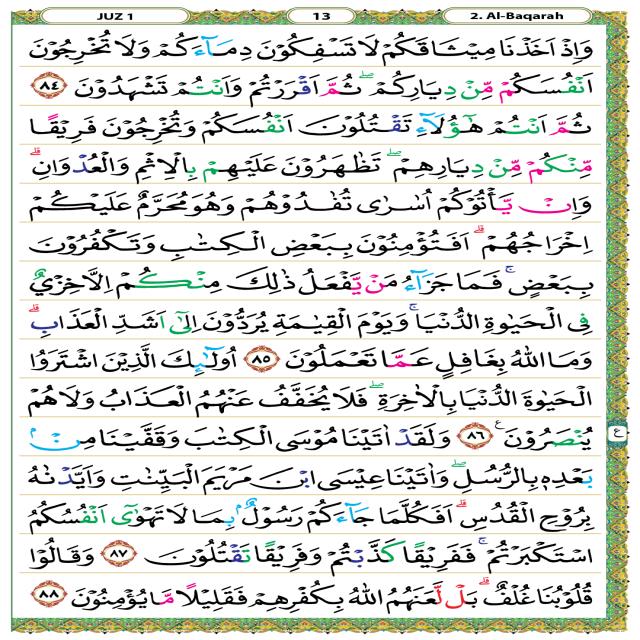 JUZ 1 13 2. Al-Baqarah
وَاِذْ اَخَذْنَا مِيْثَاقَكُمْ لَا تَسْفِكُوْنَ دِمَآءَكُمْ وَلَا تُخْرِجُوْنَ
اَنْفُسَكُمْ مِّنْ دِيَارِكُمْ ۖ ثُمَّ اَقْرَرْتُمْ وَاَنْتُمْ تَشْهَدُوْنَ ٨٤
ثُمَّ اَنْتُمْ هٰٓؤُلَآءِ تَقْتُلُوْنَ اَنْفُسَكُمْ وَتُخْرِجُوْنَ فَرِيْقًا
مِّنْكُمْ مِّنْ دِيَارِهِمْ ۖ تَظٰهَرُوْنَ عَلَيْهِمْ بِالْاِثْمِ وَالْعُدْوَانِ ۗ
وَاِنْ يَّأْتُوْكُمْ اُسٰرٰى تُفٰدُوْهُمْ وَهُوَ مُحَرَّمٌ عَلَيْكُمْ
اِخْرَاجُهُمْ ۗ اَفَتُؤْمِنُوْنَ بِبَعْضِ الْكِتٰبِ وَتَكْفُرُوْنَ
بِبَعْضٍ ۚ فَمَا جَزَآءُ مَنْ يَّفْعَلُ ذٰلِكَ مِنْكُمْ اِلَّا خِزْيٌ
فِى الْحَيٰوةِ الدُّنْيَا ۚ وَيَوْمَ الْقِيٰمَةِ يُرَدُّوْنَ اِلٰٓى اَشَدِّ الْعَذَابِ ۗ
وَمَا اللّٰهُ بِغَافِلٍ عَمَّا تَعْمَلُوْنَ ٨٥ اُولٰۤئِكَ الَّذِيْنَ اشْتَرَوُا
الْحَيٰوةَ الدُّنْيَا بِالْاٰخِرَةِ ۖ فَلَا يُخَفَّفُ عَنْهُمُ الْعَذَابُ وَلَا هُمْ
يُنْصَرُوْنَ ࣖ ٨٦ وَلَقَدْ اٰتَيْنَا مُوْسَى الْكِتٰبَ وَقَفَّيْنَا مِنْۢ ع
بَعْدِهٖ بِالرُّسُلِ ۖ وَاٰتَيْنَا عِيْسَى ابْنَ مَرْيَمَ الْبَيِّنٰتِ وَاَيَّدْنٰهُ
بِرُوْحِ الْقُدُسِ ۗ اَفَكُلَّمَا جَآءَكُمْ رَسُوْلٌۢ بِمَا لَا تَهْوٰٓى اَنْفُسُكُمُ
اسْتَكْبَرْتُمْ ۚ فَفَرِيْقًا كَذَّبْتُمْ وَفَرِيْقًا تَقْتُلُوْنَ ٨٧ وَقَالُوْا
قُلُوْبُنَا غُلْفٌ ۗ بَلْ لَّعَنَهُمُ اللّٰهُ بِكُفْرِهِمْ فَقَلِيْلًا مَّا يُؤْمِنُوْنَ ٨٨